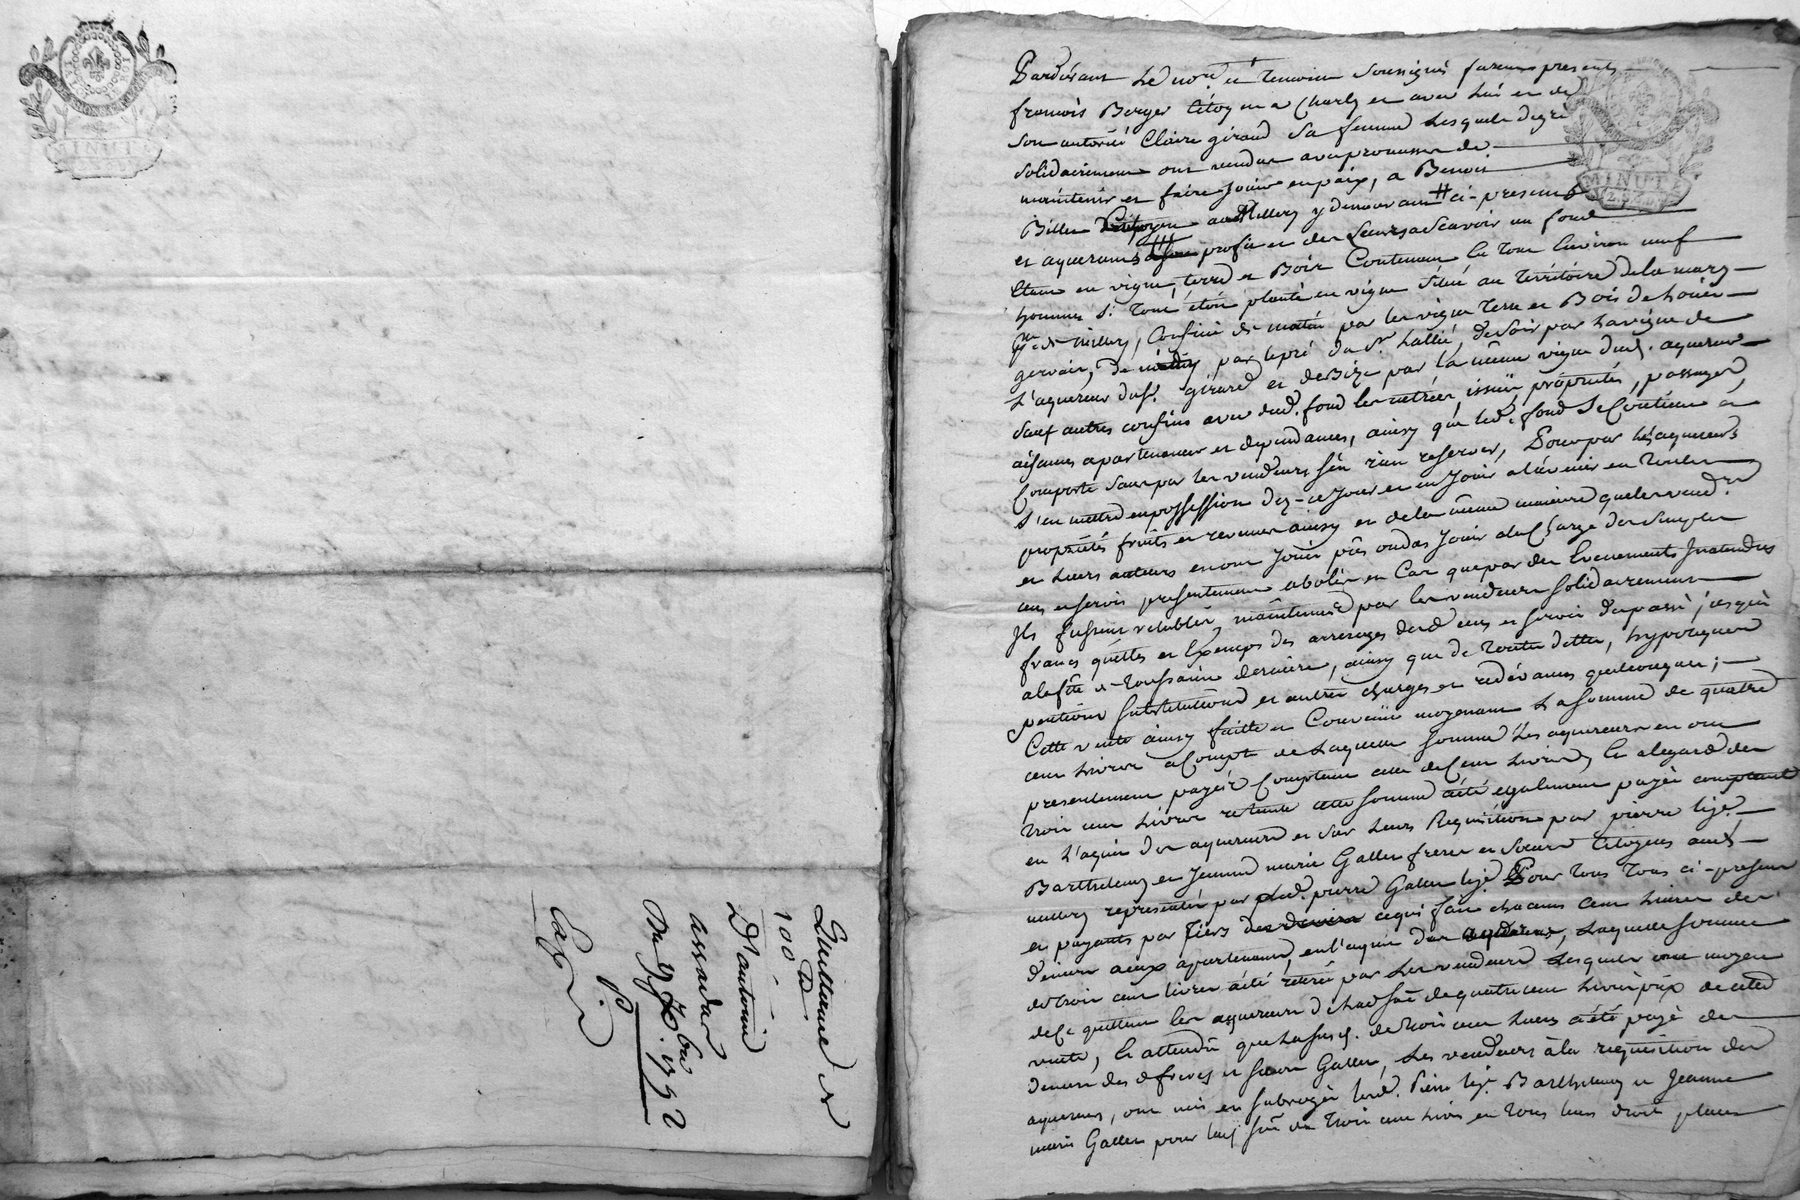 MINUTE
Quittance
100 ₶
D'antoine
assadas
Du 9 7bre 1792
Pardevant Le no.re et temoins Soussignés furent presents
francois Berger Citoyen a Charly et avec lui et de
Son autorité Claire giraud Sa femme Lesquels de gré
Solidairement ont vendus avec promesse de
maintenir et faire Jouir en paix, a Benoit
Millery y demeurant # ci-present
et aquereurs profit et des Leurs a Scavoir un fond
en vigne, terre et Bois Contenant Le tout Environ neuf
hommes Si Tout étoit planté en vigne Situé au Territoire de la
de millery, Confiné de matin par les vigne Terre et Bois de
gervais, de par le pré du Sr. Lallié, de Soir par La vigne de
L'aquereur girard et de Bize par la même vigne dud. aquereur
Sauf autres confins avec dud. fond Ses entrées, issües, propriétés, passages,
aisances apartenances et dependances, ainsy que led. fond Se Contient et
Comporte Sans par les vendeurs S'en rien reserver, Pour par Les aquereurs
S'en mettre en possession dez-ce Jour et en Jouir a l'avenir en Toutes
propriétés fruits et revenus ainsy et de la même maniere que les vend.rs
et Leurs auteurs en ont Joüi pûs ou dus Jouir a la Charge des Simples
cens et servis presentement abolis en Cas que par des Evenements Inatendus
Ils fussent retablis, maintenue par les vendeurs Solidairement
francs quittes et Exemps des arrerages desd. cens et servis du passé jusqu'a
la fête de Toussaint derniere, ainsy que de Toutes dettes, hypoteques
pentions Substitutions et autres charges et redevances quelconques;
Cette vente ainsy faitte et Convenüe moyenant La Somme de quatre
cent Livres a Compte de Laquelle Somme Les aquereurs en ont
presentement payés Comptant celle de Cent Livres, Et a legard des
trois cent Livres restante cette Somme a été egalement payée comptant
en L'aquit des aquereurs et Sur Leurs Requisition par pierre
Barthelemy et Jeanne marie Gallet freres et Soeurs Citoyens aud.
millery representés par led. pierre Gallet Pour tous Tous ci-present
et payants par Tiers ce qui fait chacuns cent Livres de
deniers a eux apartenants, en l'aquit des aquereurs, Laquelle Somme
de trois cent livres a été retirée par Les vendeurs Lesquels au moyen
de Ce quittent les aquereurs de Lad. Sôe de quatre cent Livres prix de cette
vente, Et attendu que La Sus d. de trois cent Livres a été payé des
deniers des d. freres et Soeur Gallet, Les vendeurs à la requisition des
aquereurs, ont mis et Subrogés Led. Pierre Barthelemy et Jeanne
marie Gallet pour lad. Sôe de Trois cent Livres en Tous leurs droits places